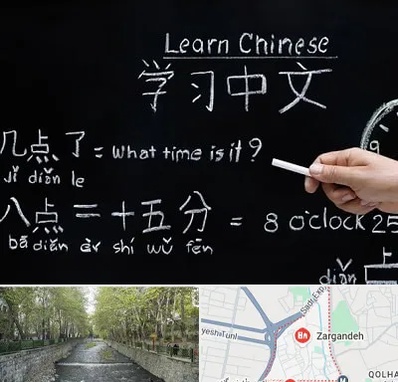 Learn Chinese
学习中文
几点了 = What time is it?
jǐ diǎn le
八点二十五分 = 8 o'clock 25
bā diǎn èr shí wǔ fēn
9
上
diǎn
Sadr Exp
yeshi Tunl
Zargandeh
QOLHA